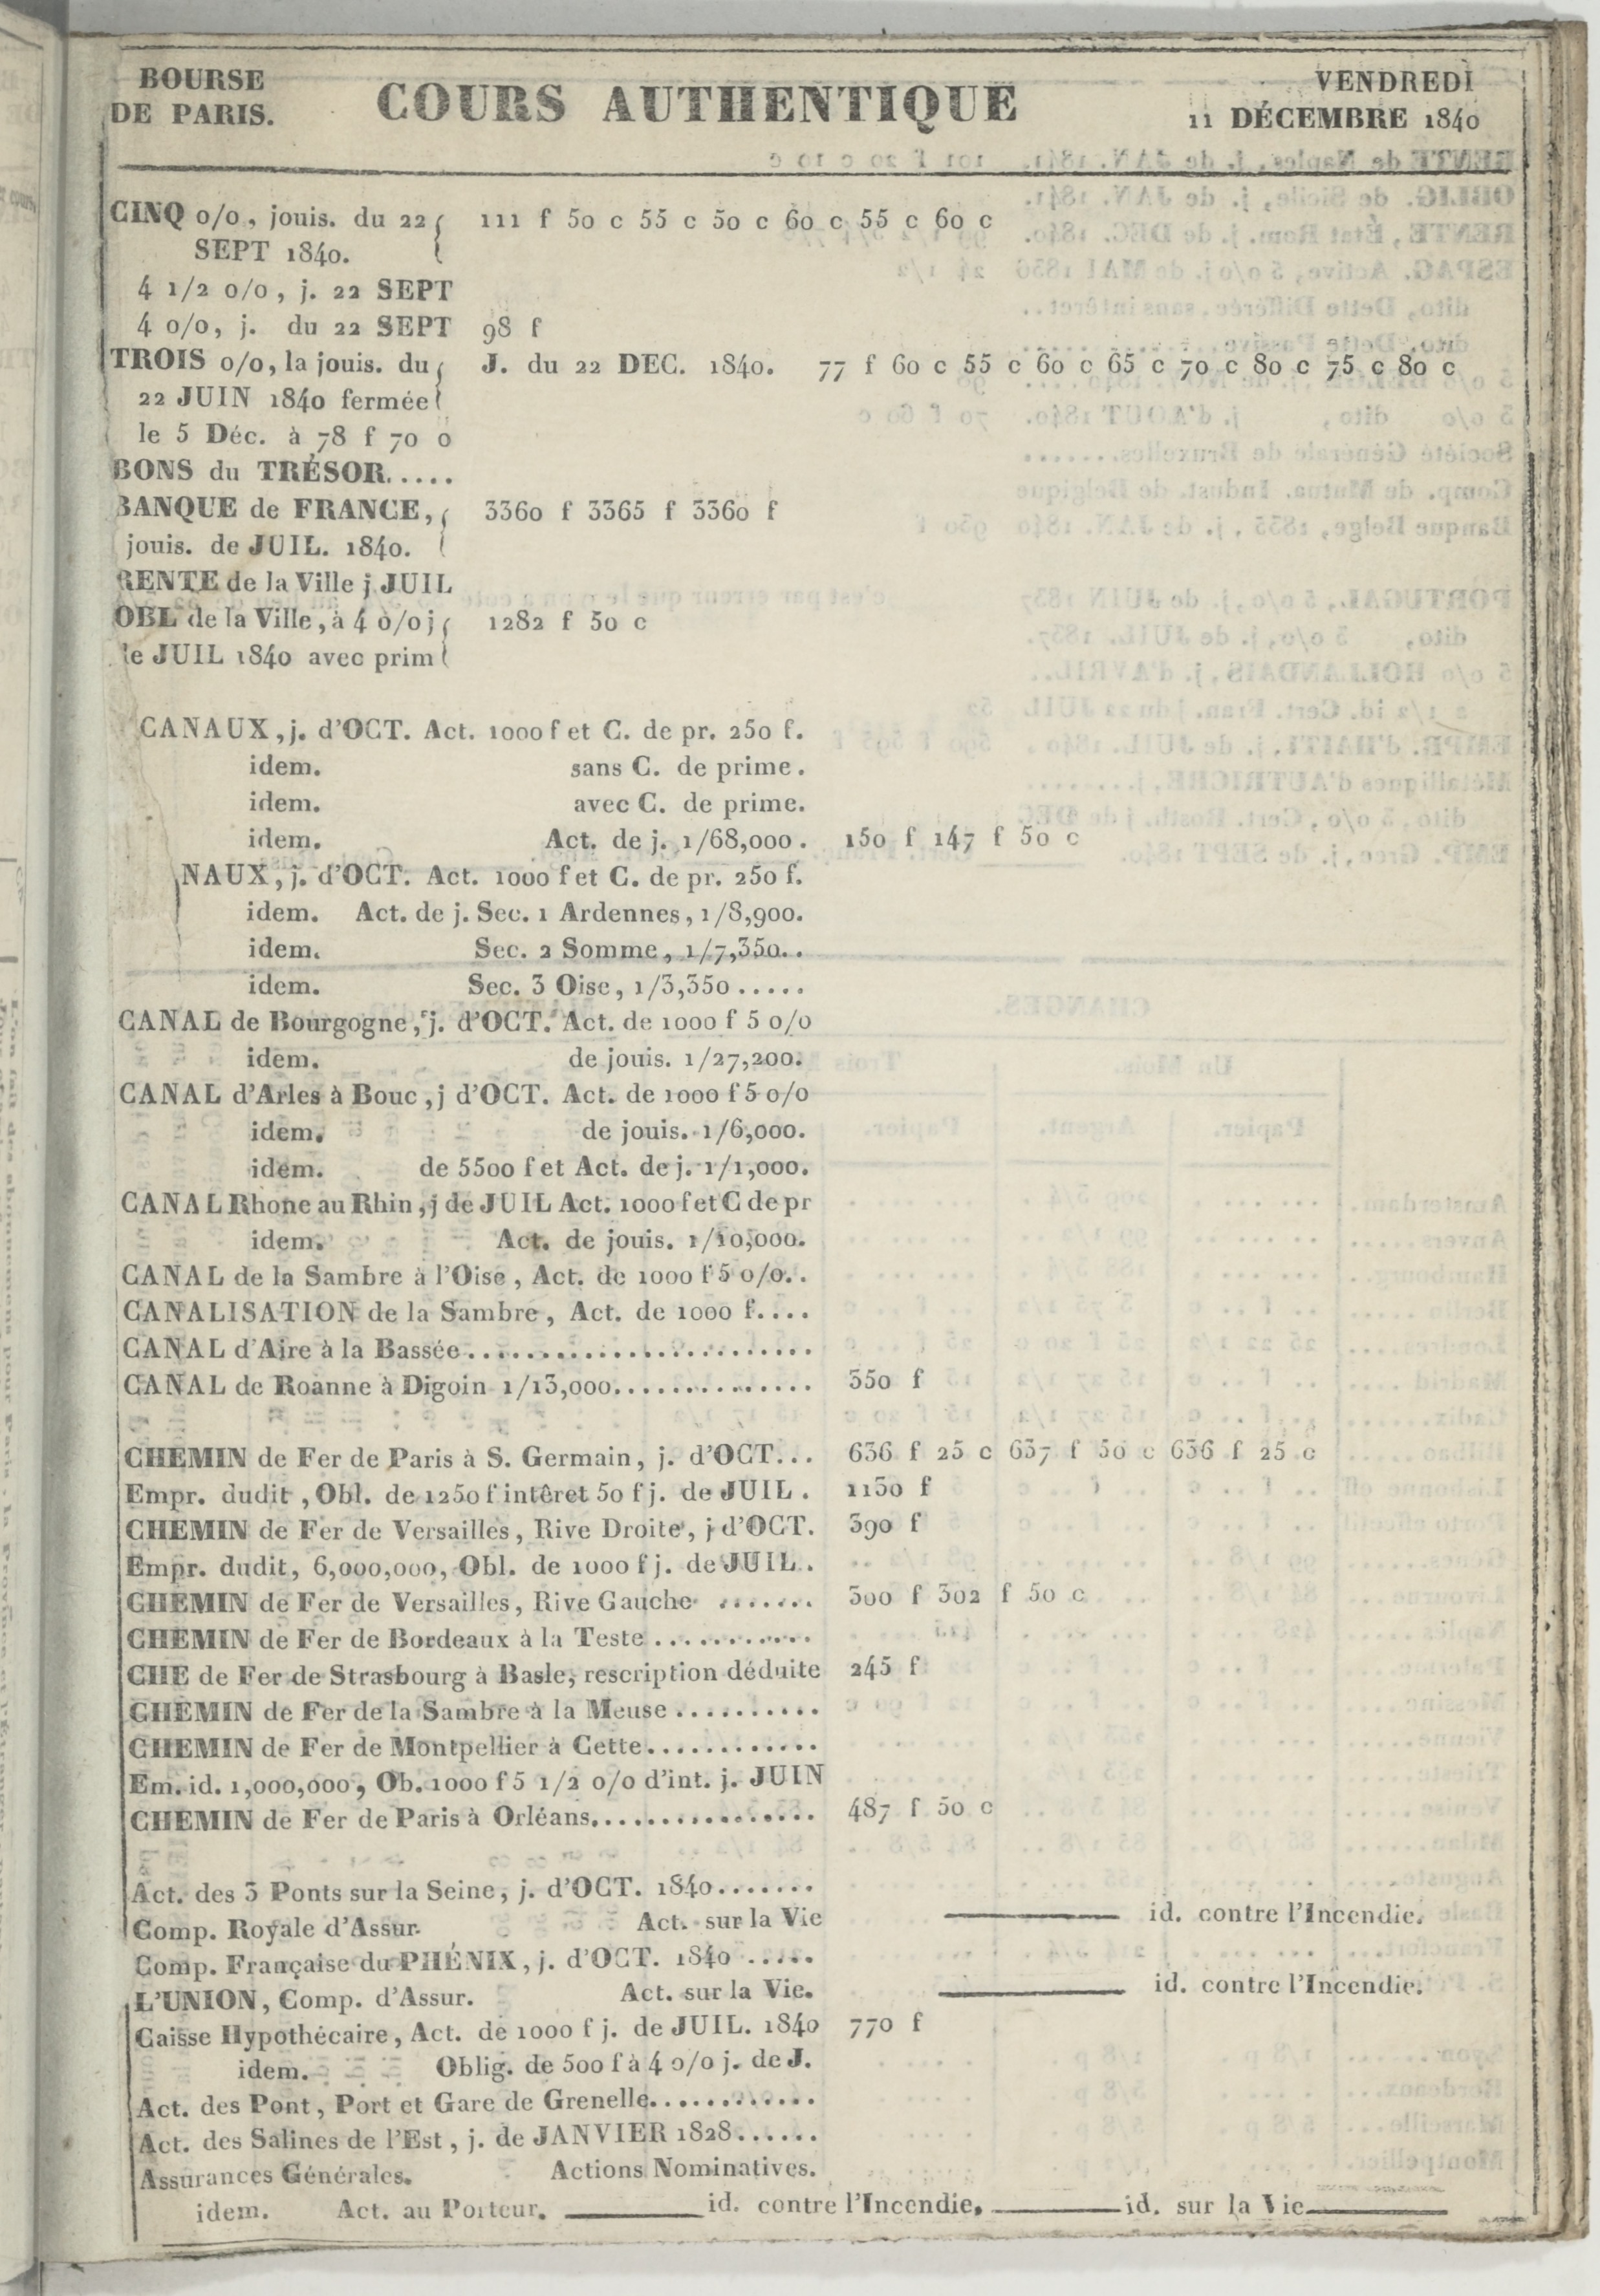 BOURSE
DE PARIS.
COURS AUTHENTIQUE
VENDREDI
11 DÉCEMBRE 1840
CINQ 0/0, jouis. du 22 111 f 50 c 55 c 50 c 60 c 55 c 60 c
SEPT 1840.
4 1/2 0/0, j. 22 SEPT
4 0/0, j. du 22 SEPT 98 f
TROIS 0/0, la jouis. du J. du 22 DEC. 1840. 77 f 60 c 55 c 60 c 65 c 70 c 80 c 75 c 80 c
22 JUIN 1840 fermée
le 5 Déc. à 78 f 70 0
BONS du TRÉSOR.....
BANQUE de FRANCE, 3360 f 3365 f 3360 f
jouis. de JUIL. 1840.
RENTE de la Ville j JUIL
OBL de la Ville, à 4 0/0 j 1282 f 50 c
le JUIL 1840 avec prim
CANAUX, j. d'OCT. Act. 1000 f et C. de pr. 250 f.
idem. sans C. de prime.
idem. avec C. de prime.
idem. Act. de j. 1/68,000. 150 f 147 f 50 c
NAUX, j. d'OCT. Act. 1000 f et C. de pr. 250 f.
idem. Act. de j. Sec. 1 Ardennes, 1/8,900.
idem. Sec. 2 Somme, 1/7,350..
idem. Sec. 3 Oise, 1/3,350.....
CANAL de Bourgogne, j. d'OCT. Act. de 1000 f 5 0/0
idem. de jouis. 1/27,200.
CANAL d'Arles à Bouc, j d'OCT. Act. de 1000 f 5 0/0
idem. de jouis. 1/6,000.
idem. de 5500 f et Act. de j. 1/1,000.
CANAL Rhone au Rhin, j de JUIL Act. 1000 f et C de pr
idem. Act. de jouis. 1/10,000.
CANAL de la Sambre à l'Oise, Act. de 1000 f 5 0/0..
CANALISATION de la Sambre, Act. de 1000 f....
CANAL d'Aire à la Bassée........................
CANAL de Roanne à Digoin 1/13,000.............. 350 f
CHEMIN de Fer de Paris à S. Germain, j. d'OCT... 636 f 25 c 637 f 50 c 636 f 25 c
Empr. dudit, Obl. de 1250 f intêret 50 f j. de JUIL. 1150 f
CHEMIN de Fer de Versailles, Rive Droite, j d'OCT. 390 f
Empr. dudit, 6,000,000, Obl. de 1000 f j. de JUIL.
CHEMIN de Fer de Versailles, Rive Gauche ....... 300 f 302 f 50 c
CHEMIN de Fer de Bordeaux à la Teste ............
CHE de Fer de Strasbourg à Basle, rescription déduite 245 f
CHEMIN de Fer de la Sambre à la Meuse ..........
CHEMIN de Fer de Montpellier à Cette............
Em. id. 1,000,000, Ob. 1000 f 5 1/2 0/0 d'int. j. JUIN
CHEMIN de Fer de Paris à Orléans................ 487 f 50 c
Act. des 3 Ponts sur la Seine, j. d'OCT. 1840.......
Comp. Royale d'Assur. Act. sur la Vie ——— id. contre l'Incendie.
Comp. Française du PHÉNIX, j. d'OCT. 1840 .....
L'UNION, Comp. d'Assur. Act. sur la Vie. ——— id. contre l'Incendie.
Caisse Hypothécaire, Act. de 1000 f j. de JUIL. 1840 770 f
idem. Oblig. de 500 f à 4 0/0 j. de J.
Act. des Pont, Port et Gare de Grenelle............
Act. des Salines de l'Est, j. de JANVIER 1828......
Assurances Générales. Actions Nominatives.
idem. Act. au Porteur. ——— id. contre l'Incendie, ——— id. sur la Vie ———